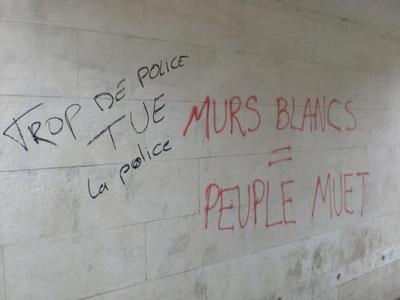 TROP DE POLICE
TUE
La police
MURS BLANCS
=
PEUPLE MUET